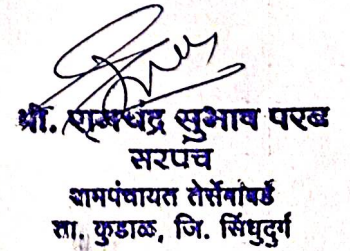 श्री. रामचंद्र सुभाव परब
सरपंच
ग्रामपंचायत तेर्सेबांबर्डे
ता. कुडाळ, जि. सिंधुदुर्ग